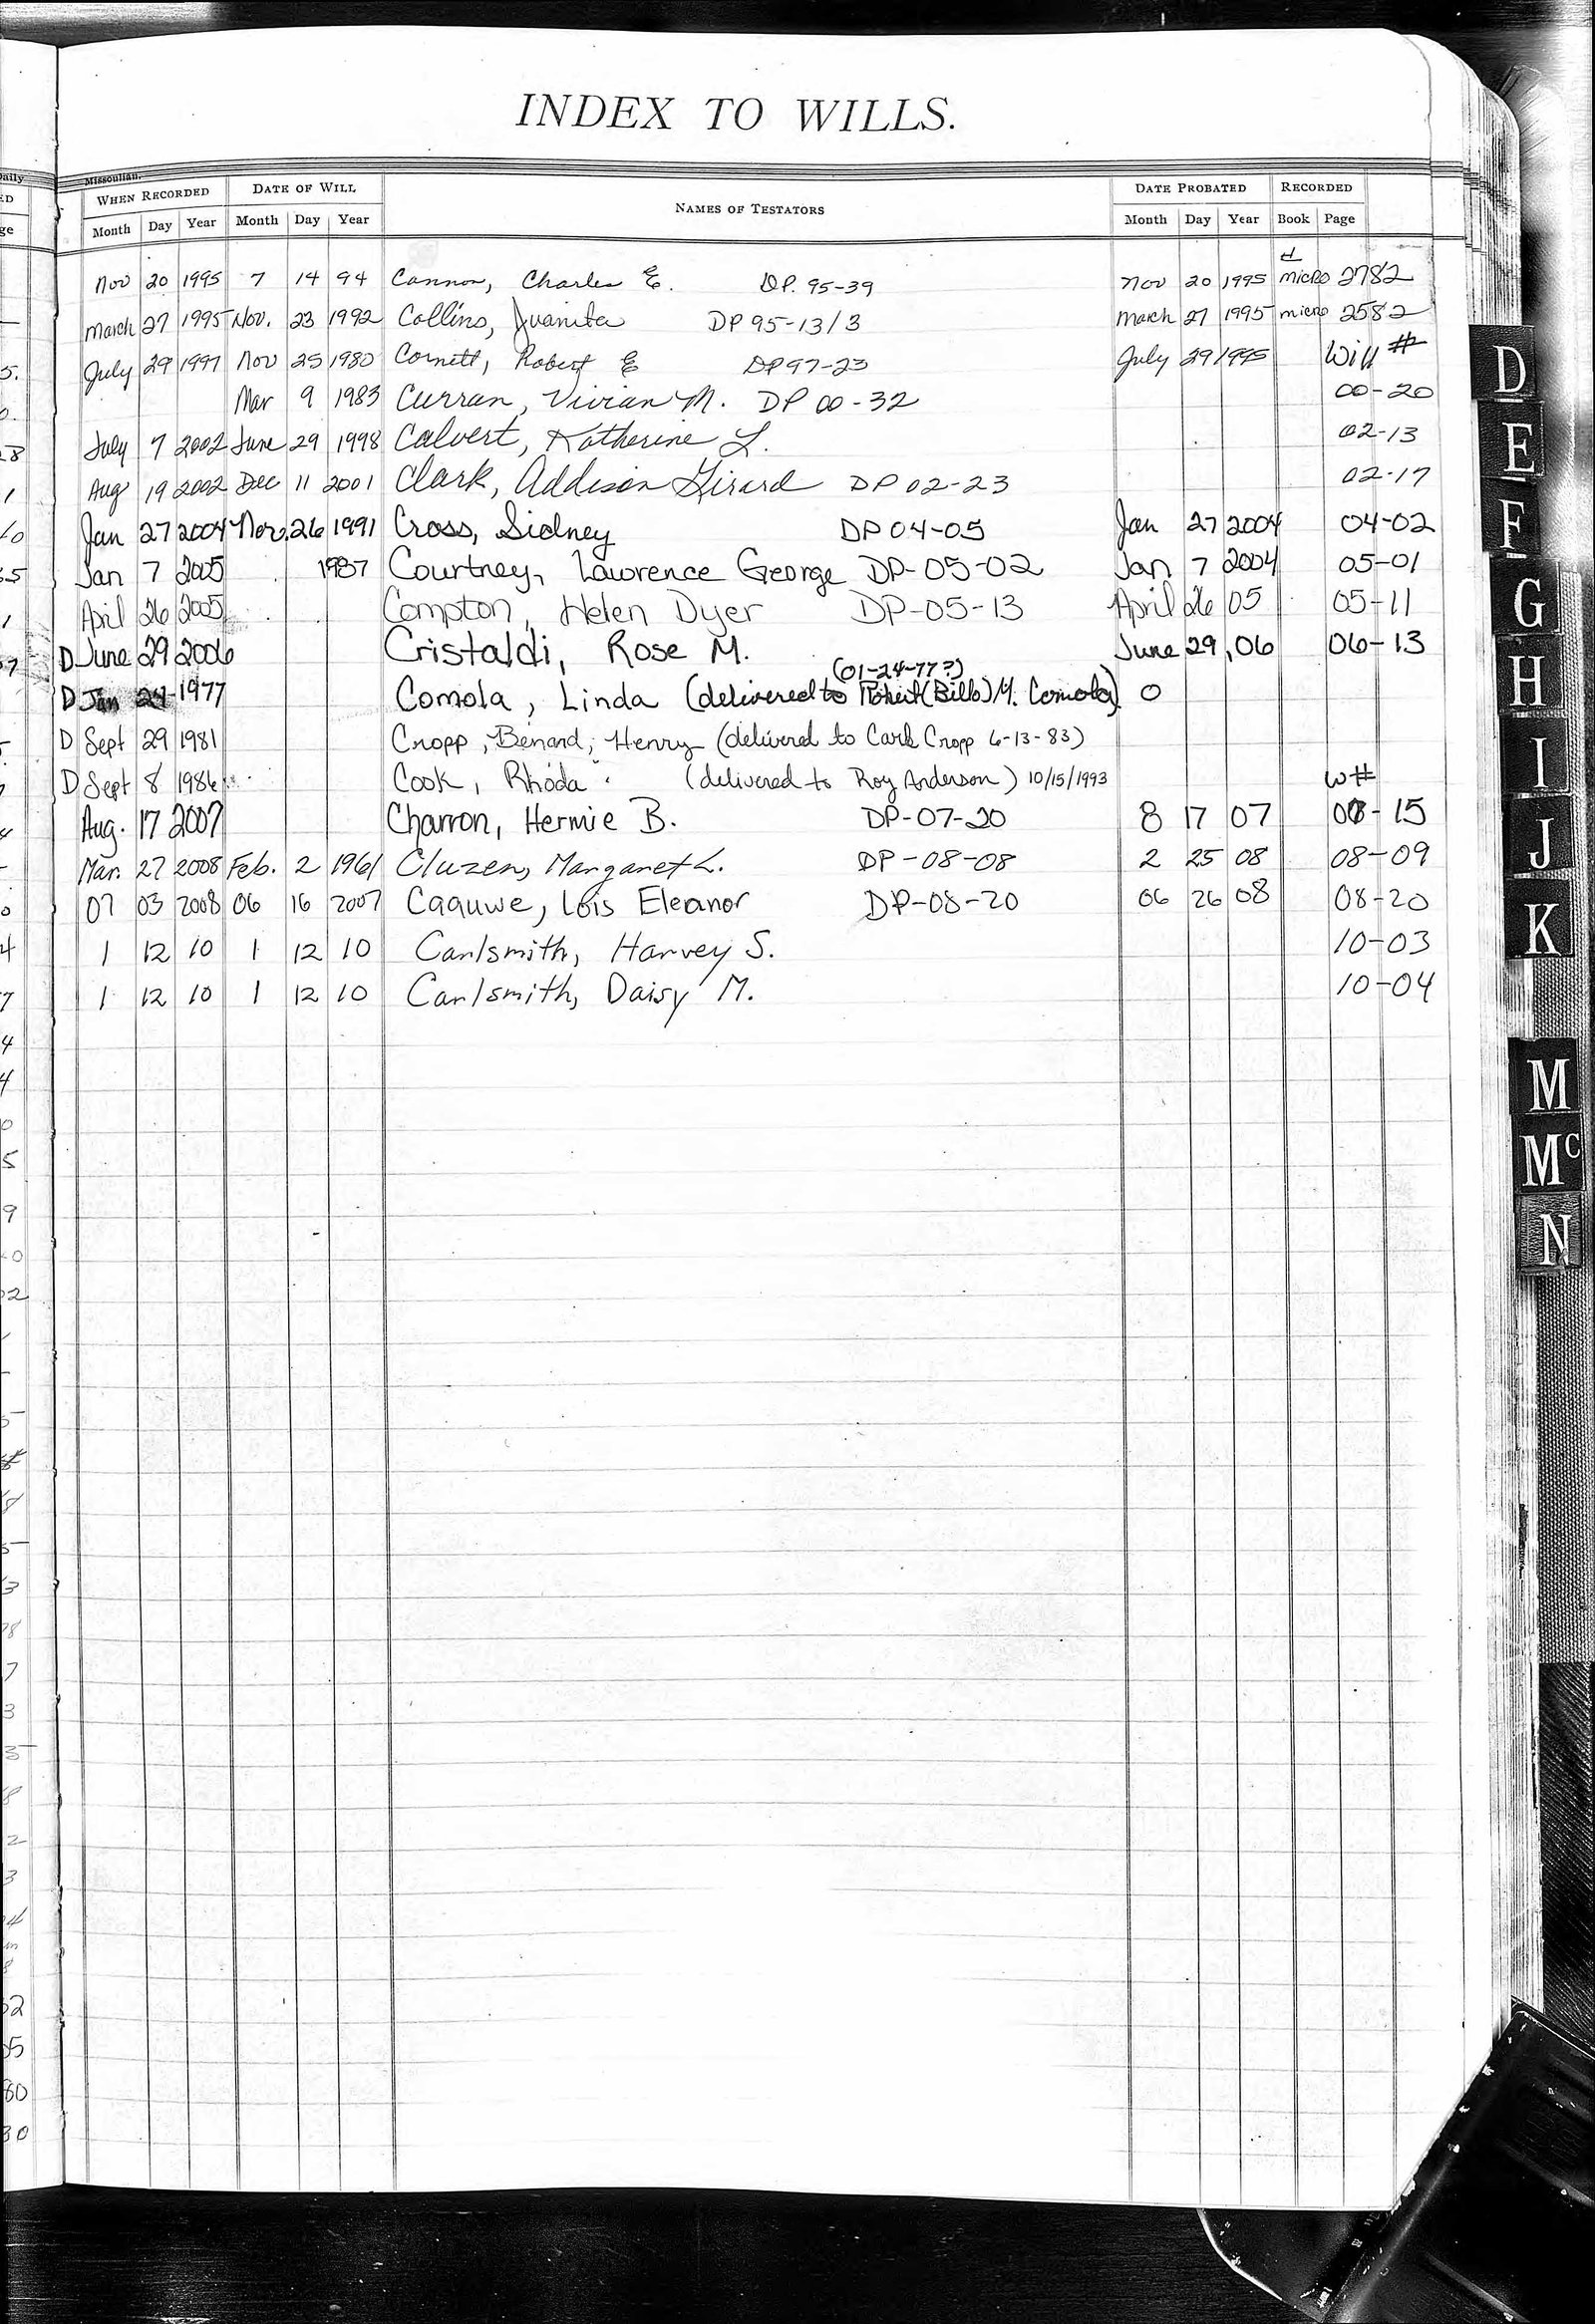 INDEX TO WILLS.
Missoulian.
WHEN RECORDED DATE OF WILL NAMES OF TESTATORS DATE PROBATED RECORDED
Month Day Year Month Day Year Month Day Year Book Page
Nov 20 1995 7 14 94 Cannon, Charles E. DP. 95-39 Nov 20 1995 micro 2782
March 27 1995 Nov. 23 1992 Collins, Juanita DP 95-13/3 March 27 1995 micro 2582
July 29 1997 Nov 25 1980 Cornett, Robert E DP97-23 July 29 1995 Will #
Mar 9 1983 Curran, Vivian M. DP 00-32 00-20
July 7 2002 June 29 1998 Calvert, Katherine L. 02-13
Aug 19 2002 Dec 11 2001 Clark, Addison Girard DP 02-23 02-17
Jan 27 2004 Nov. 26 1991 Cross, Sidney DP 04-05 Jan 27 2004 04-02
Jan 7 2005 1987 Courtney, Lawrence George DP-05-02 Jan 7 2004 05-01
April 26 2005 Compton, Helen Dyer DP-05-13 April 26 05 05-11
D June 29 2006 Cristaldi, Rose M. June 29, 06 06-13
(01-24-77?)
D Jan 24 1977 Comola, Linda (delivered to Robert (Bills) M. Comola) 0
D Sept 29 1981 Cropp, Benard, Henry (delivered to Carl Cropp 6-13-83)
D Sept 8 1986 Cook, Rhoda (delivered to Roy Anderson) 10/15/1993 W#
Aug. 17 2007 Charron, Hermie B. DP-07-20 8 17 07 07-15
Mar. 27 2008 Feb. 2 1961 Cluzen, Margaret L. DP-08-08 2 25 08 08-09
07 03 2008 06 16 2007 Caauwe, Lois Eleanor DP-08-20 06 26 08 08-20
1 12 10 1 12 10 Carlsmith, Harvey S. 10-03
1 12 10 1 12 10 Carlsmith, Daisy M. 10-04
D
E
F
G
H
I
J
K
M
Mc
N